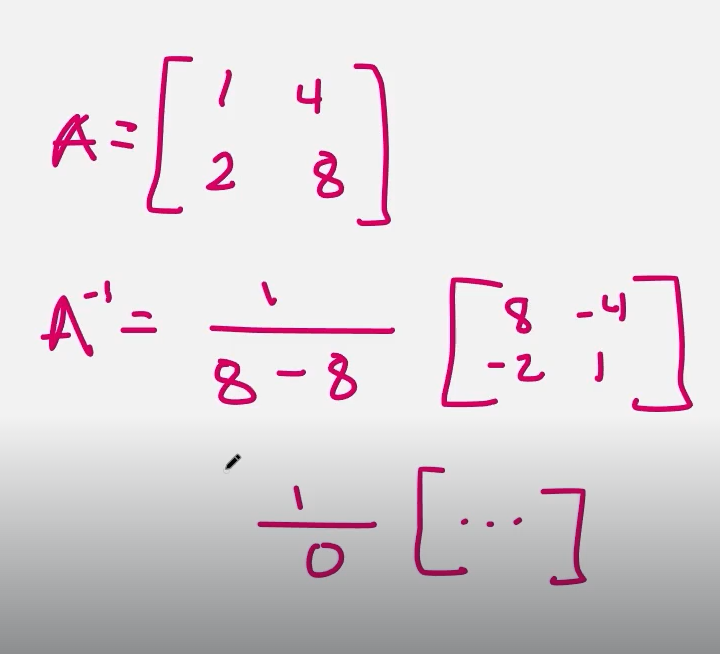 A = [ 1 4
2 8 ]
A⁻¹ = 1 / 8 - 8 [ 8 -4
-2 1 ]
1 / 0 [ ... ]